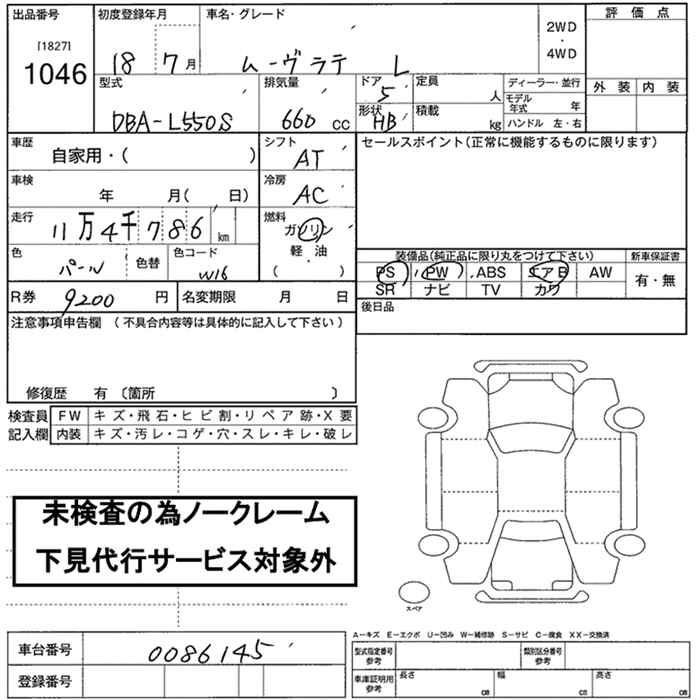 出品番号 初度登録年月 車名・グレード 2WD・4WD 評価点
[1827]
1046 18 7月 ムーヴラテ L
型式 排気量 ドア 定員 ディーラー・並行 外装 内装
DBA-L550S 660 cc 5 人 モデル年式 年
形状 HB 積載 kg ハンドル 左・右
車歴 シフト セールスポイント(正常に機能するものに限ります)
自家用・( ) AT
車検 冷房
年 月( 日) AC
走行 燃料
11万4千786 km ガソリン
軽・油
( ・ )
色 色替 色コード 装備品(純正品に限り丸をつけて下さい) 新車保証書
パール W16 PS PW ABS エアB AW 有・無
SR ナビ TV カワ
R券 9200 円 名変期限 月 日 後日品
注意事項申告欄 (不具合内容等は具体的に記入して下さい)
修復歴 有 〔箇所 〕
検査員 FW キズ・飛石・ヒビ割・リペア跡・X要
記入欄 内装 キズ・汚レ・コゲ・穴・スレ・キレ・破レ
未検査の為ノークレーム
下見代行サービス対象外
スペア
A-キズ E-エクボ U-凹み W-補修跡 S-サビ C-腐食 XX-交換済
車台番号 0086145 型式指定番号 参考 類別区分番号 参考
登録番号 車庫証明用 参考 長さ cm 幅 cm 高さ cm